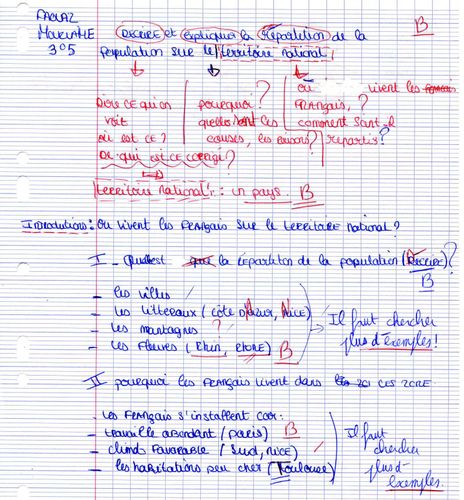 MOUNINE DÉCRIRE et expliquer la Répartition de la B
3°5 population sur le territoire national.
Dire ce qu'on pourquoi? où vivent les
voit quelles sont les Français,?
où est ce? causes, les raisons? comment sont-il repartis?
De qui est ce corrigé?
territoire national: un pays. B
Introductions: où vivent les Français sur le territoire national?
I - Quelle est la répartition de la population (DÉCRIRE)?
B
- les villes
- les littoraux (côte d'Azur, Nice) Il faut chercher
- les montagnes ? plus d'exemples!
- les fleuves (Rhin, RHONE) B
II pourquoi les Français vivent dans CES ZONE
- les Français s'installent car:
- travaille abondant (Paris) B Il faut
- climat favorable (Sud, Nice) chercher
- les habitations peu cher (Toulouse) plus d'-
exemples.